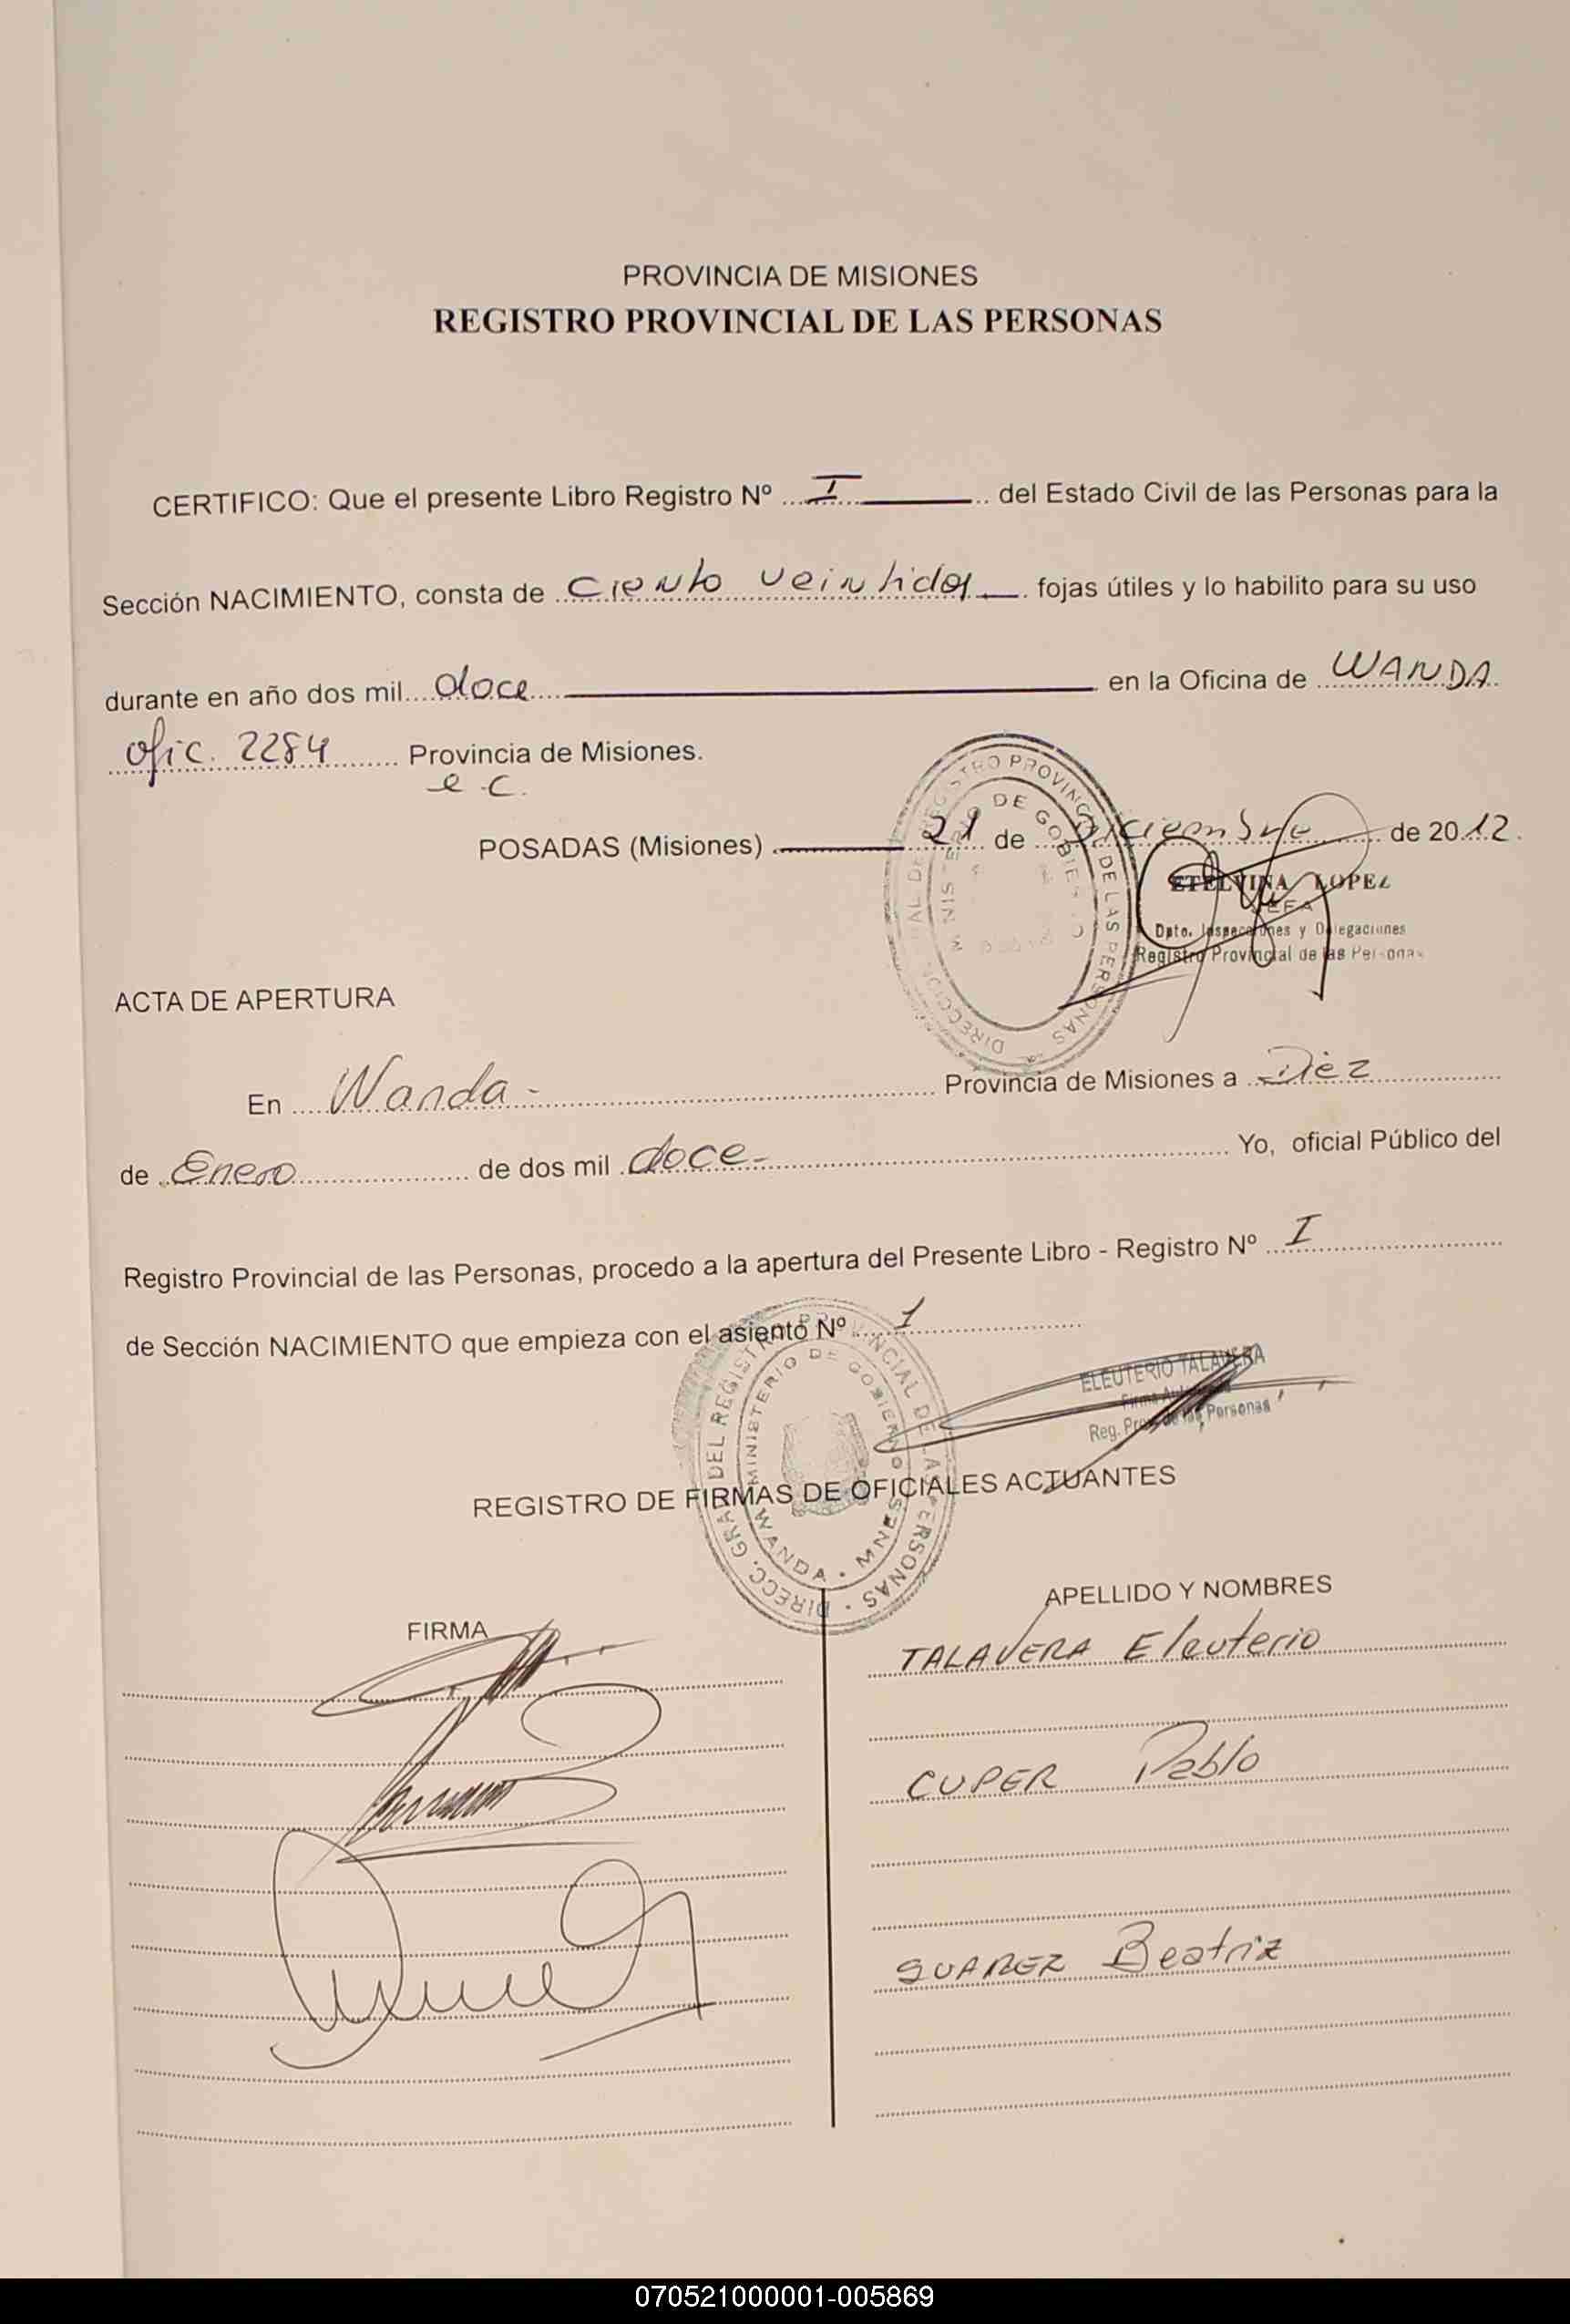 PROVINCIA DE MISIONES
REGISTRO PROVINCIAL DE LAS PERSONAS
CERTIFICO: Que el presente Libro Registro Nº I del Estado Civil de las Personas para la
Sección NACIMIENTO, consta de ciento veintidos fojas útiles y lo habilito para su uso
durante en año dos mil doce en la Oficina de WANDA
ofic. 2284 Provincia de Misiones.
e.c.
POSADAS (Misiones) 21 de Diciembre de 2012.
ETELVINA LOPEZ
JEFA
Dpto. Inspecciones y Delegaciones
Registro Provincial de las Personas
ACTA DE APERTURA
En Wanda - Provincia de Misiones a Diez
de Enero de dos mil doce - Yo, oficial Público del
Registro Provincial de las Personas, procedo a la apertura del Presente Libro - Registro Nº I
de Sección NACIMIENTO que empieza con el asiento Nº 1
ELEUTERIO TALAVERA
Reg. Prov. de las Personas
DIRECC. GRAL DEL REGISTRO PROVINCIAL DE LAS PERSONAS
MINISTERIO DE GOBIERNO
WANDA - MNES
REGISTRO DE FIRMAS DE OFICIALES ACTUANTES
FIRMA
APELLIDO Y NOMBRES
TALAVERA Eleuterio
CUPER Pablo
SUAREZ Beatriz
070521000001-005869